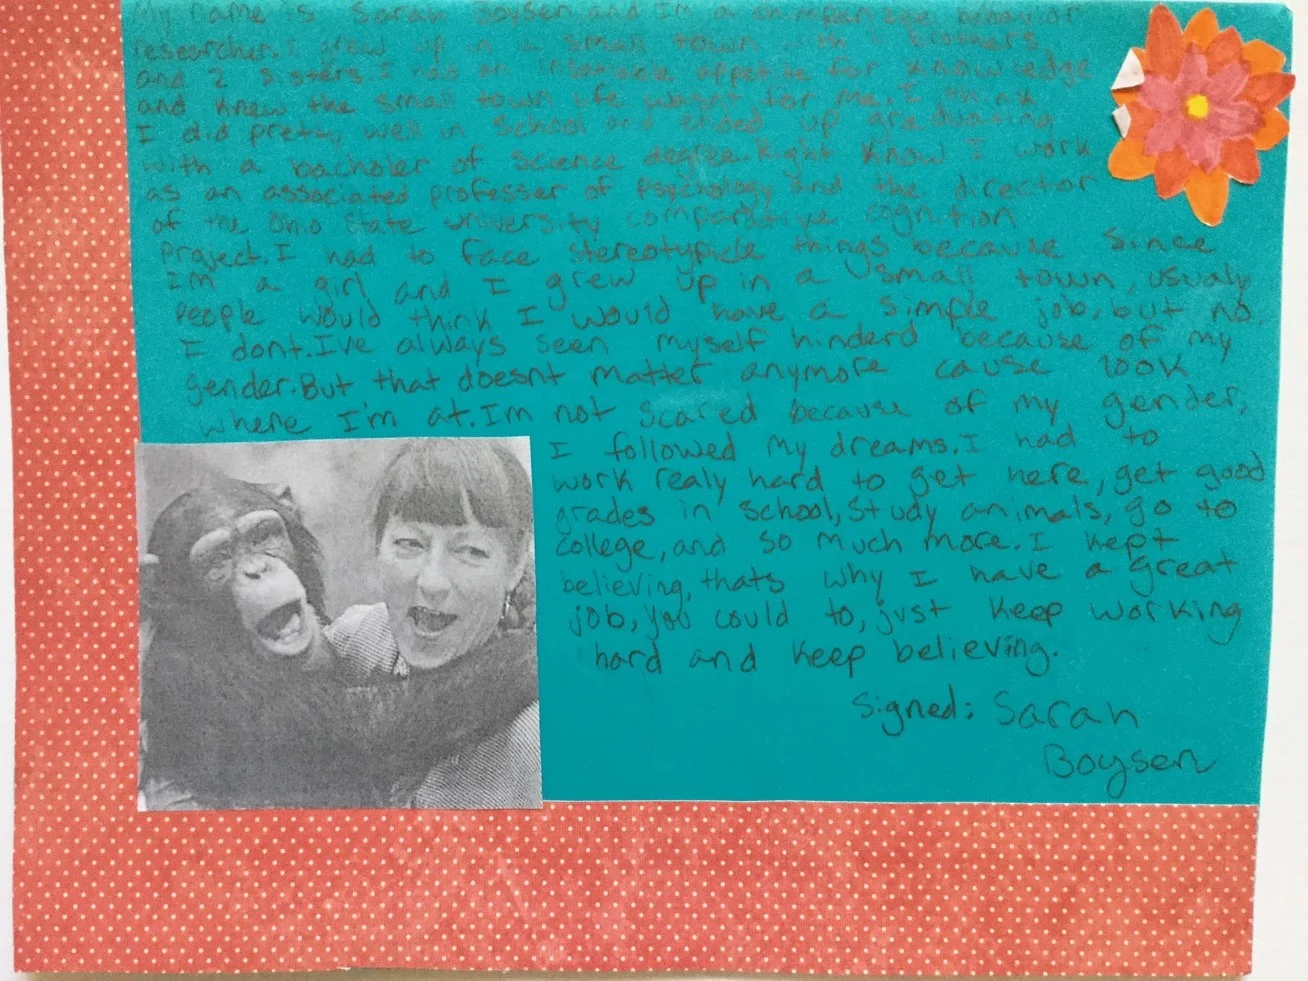 My name is Sarah Boysen, and I'm a chimpanzee behavior
researcher. I grew up in a small town with brothers
and 2 sisters. I had an insatiable appetite for knowledge
and knew the small town life wasnt for me. I think
I did pretty well in school and ended up graduating
with a bacholer of science degree. Right know I work
as an associated professer of psychology and the director
of the Ohio State university comparative cognition
project. I had to face stereotypicle things because since
I'm a girl and I grew up in a small town, usualy
people would think I would have a simple job, but no
I dont. I've always seen myself hinderd because of my
gender. But that doesnt matter anymore cause look
where I'm at. Im not scared because of my gender,
I followed my dreams. I had to
work realy hard to get here, get good
grades in school, study animals, go to
college, and so much more. I kept
believing, thats why I have a great
job, you could to, just keep working
hard and keep believing.
Signed: Sarah
Boysen